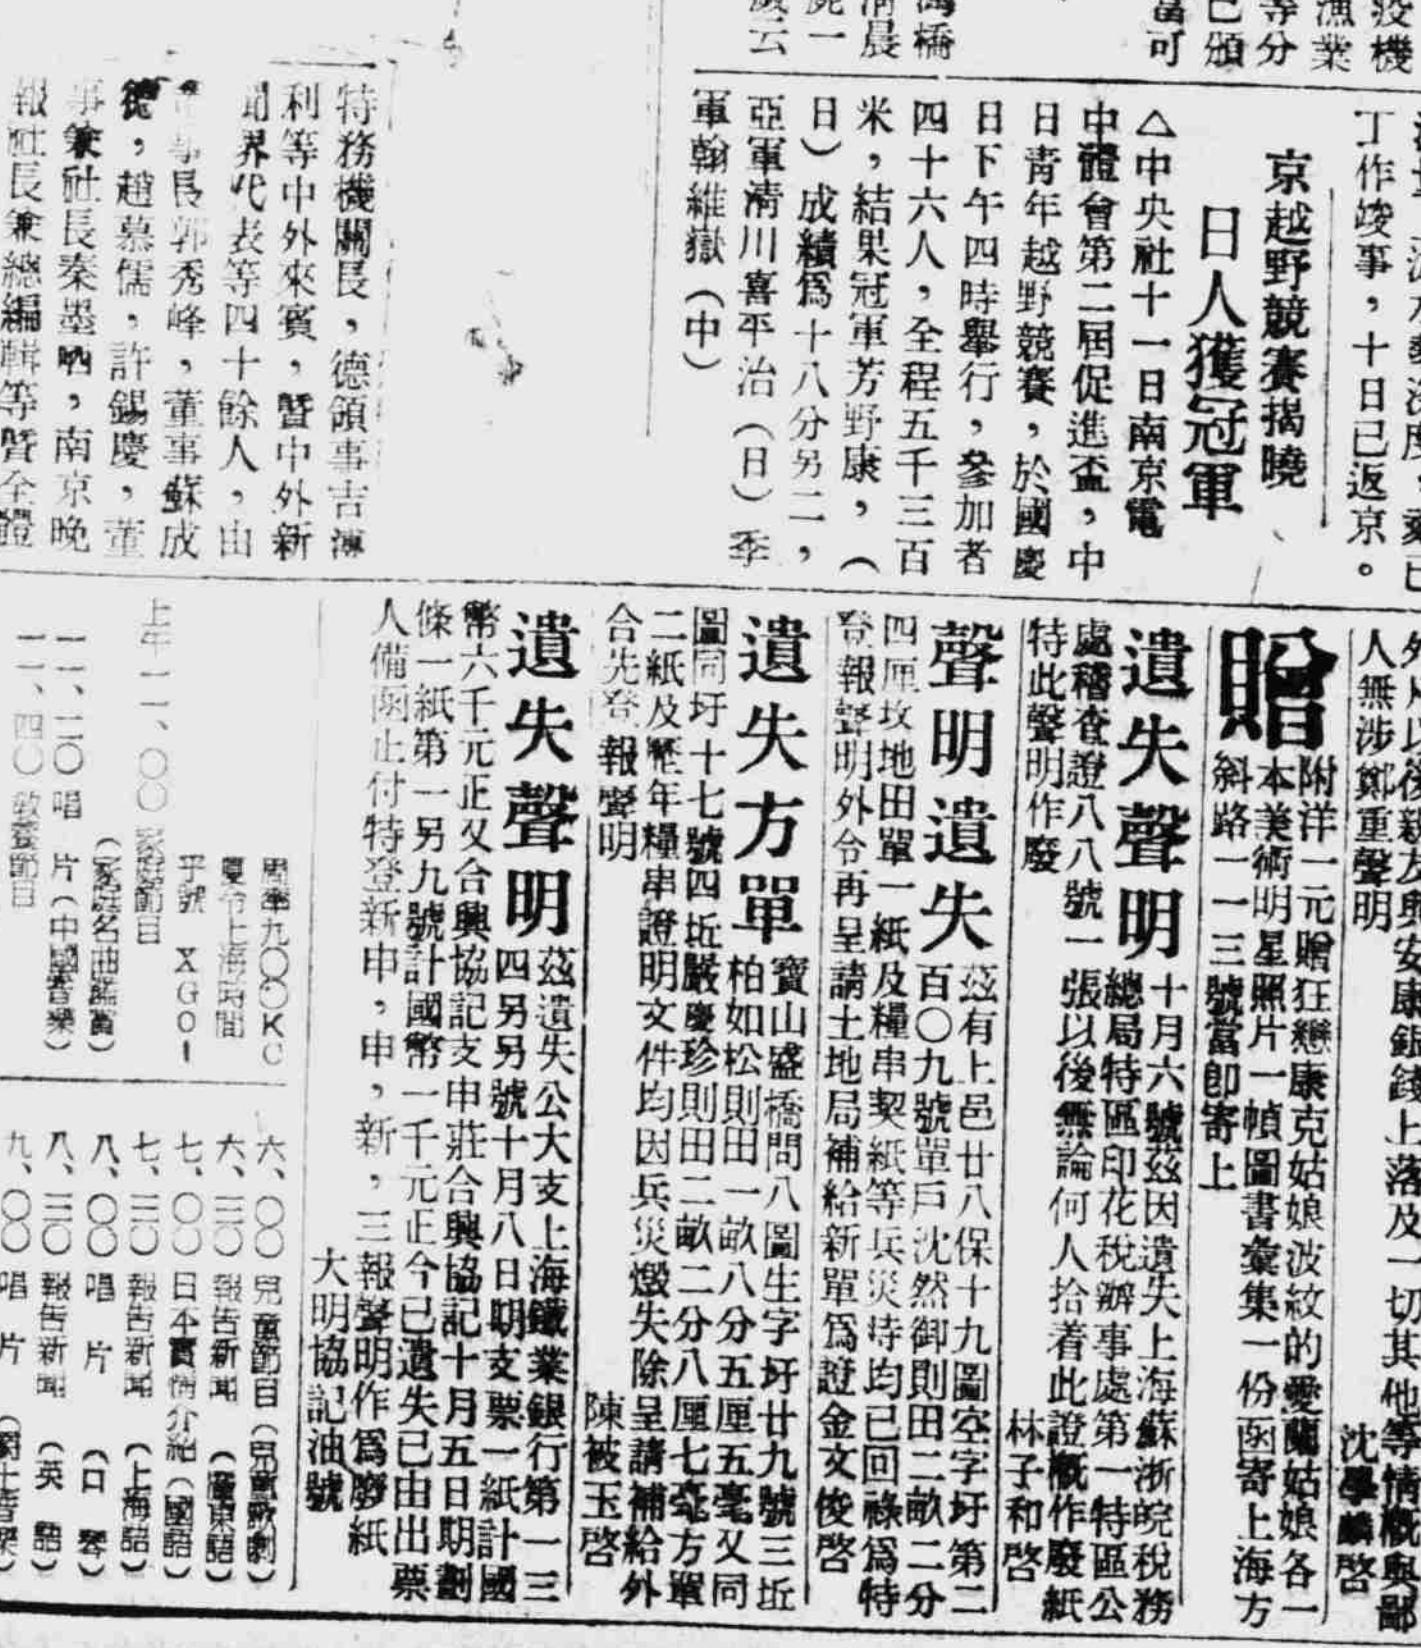 丁作竣事，十日已返京。
京越野競賽揭曉
日人獲冠軍
△中央社十一日南京電
中體會第二屆促進盃，中
日青年越野競賽，於國慶
日下午四時舉行，參加者
四十六人，全程五千三百
米，結果冠軍芳野康，（
日）成績爲十八分另二，
亞軍清川喜平治（日）季
軍翰維嶽（中）
特務機關長，德領事吉溥
利等中外來賓，暨中外新
聞界代表等四十餘人，由
事長郭秀峰，董事蘇成
德，趙慕儒，許錫慶，董
事兼社長秦墨哂，南京晚
報社長兼總編輯等暨全體
安康銀錢上落及一切其他等情概與鄙
人無涉鄭重聲明
沈學麟啓
贈
附洋一元贈狂戀康克姑娘波紋的愛蘭姑娘各一
本美術明星照片一幀圖書彙集一份函寄上海方
斜路一一三號當卽寄上
遺失聲明
十月六號茲因遺失上海蘇浙皖稅務
總局特區印花稅辦事處第一特區公
處稽查證八八號一張以後無論何人拾着此證概作廢紙
特此聲明作廢
林子和啓
聲明遺失
茲有上邑廿八保十九圖空字圩第二
百〇九號單戶沈然御則田二畝二分
四厘玫地田單一紙及糧串契紙等兵災時均已回祿爲特
登報聲明外令再呈請土地局補給新單爲證金文俊啓
遺失方單
寶山盛橋問八圖生字圩廿九號三坵
柏如松則田一畝八分五厘五毫又同
圖同圩十七號四坵嚴慶珍則田二畝二分八厘七毫方單
二紙及歷年糧串證明文件均因兵災燬失除呈請補給外
合先登報聲明
陳被玉啓
遺失聲明
茲遺失公大支上海鐵業銀行第一三
四另另號十月八日期支票一紙計國
幣六千元正又合興協記支申莊合興協記十月五日期劃
條一紙第一另九號計國幣一千元正今已遺失已由出票
人備函止付特登新申，申，新，三報聲明作爲廢紙
大明協記油號
周率九〇〇KC
夏令上海時間
呼號 XGOI
上午一一、〇〇 家庭節目
（家庭名曲鑑賞）
一一、二〇 唱 片（中國音樂）
一一、四〇 教養節目
六、〇〇 兒童節目（兒童歌劇）
六、三〇 報告新聞（廣東語）
七、〇〇 日本實情介紹（國語）
七、三〇 報告新聞（上海語）
八、〇〇 唱 片（口 琴）
八、三〇 報告新聞（英 語）
九、〇〇 唱 片（爵士音樂）